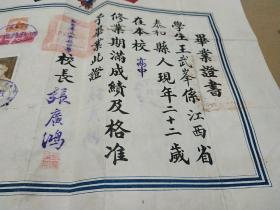 畢業證書
學生王武峯係江西省
泰和縣人現年二十二歲
在本校高中
修業期滿成績及格准
予畢業此證
校長 張廣鴻